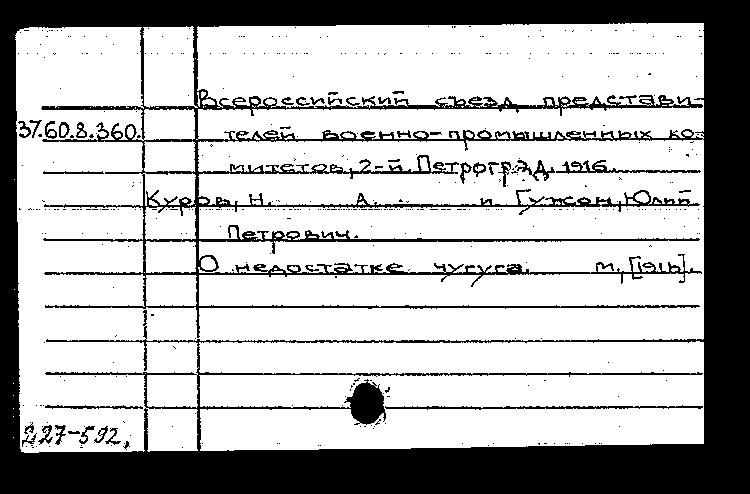 Всероссийский съезд представи-
37.60.8.360. телей военно-промышленных ко-
митетов, 2-й. Петроград. 1916.
Куров, Н. А. и Гужон, Юлий
Петрович.
О недостатке чугуга. М., [1916].
227-592.